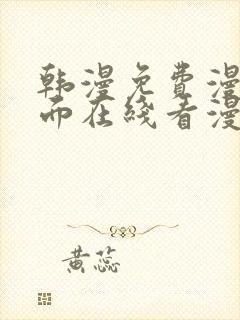 韩漫免费漫
而在线看漫
黄蕊